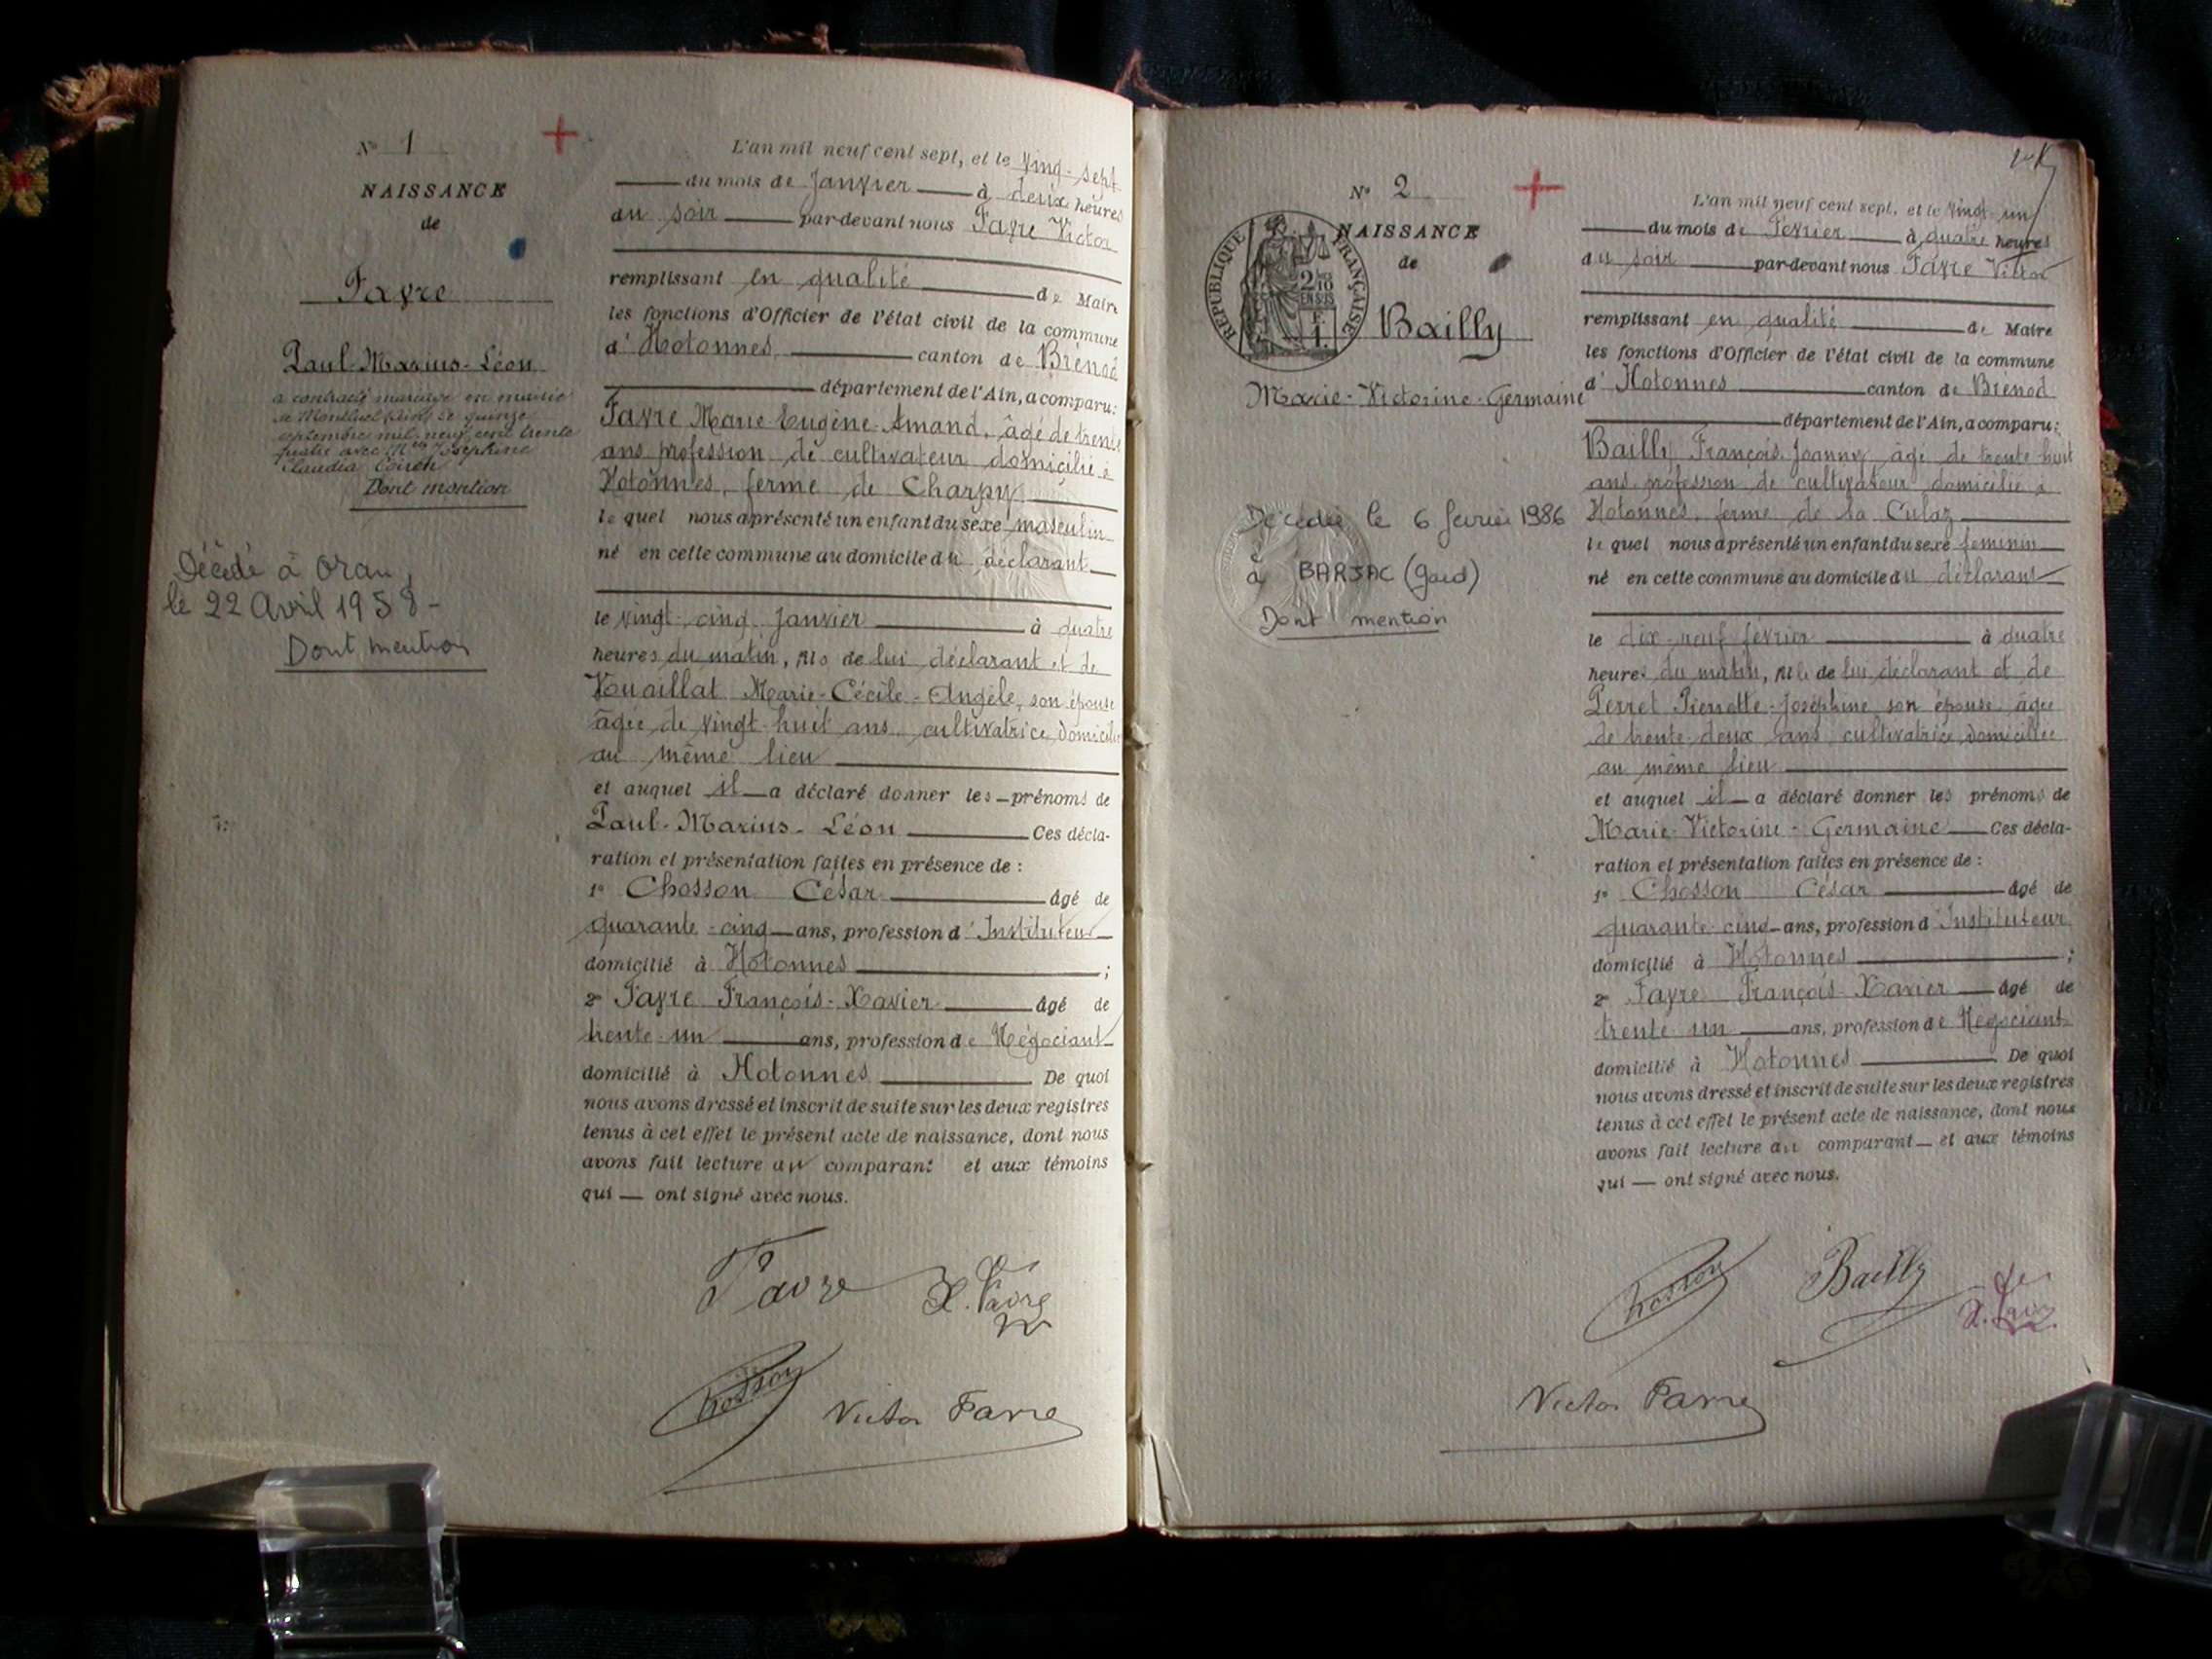 N° 1
NAISSANCE
de
Favre
Paul-Marius-Léon
a contracté mariage en mairie
de Montluel (Ain) le quinze
septembre mil neuf cent trente
quatre avec Melle Joséphine
Claudia
Dont mention
Décédé à Oran,
le 22 Avril 1958 -
Dont mention
L'an mil neuf cent sept, et le ving-sept
du mois de Janvier à deux heures
du soir par-devant nous Favre Victor
remplissant en qualité de Maire
les fonctions d'Officier de l'état civil de la commune
d' Hotonnes canton de Brenod
département de l'Ain, a comparu:
Favre Marie-Eugène-Amand, âgé de trente
ans profession de cultivateur domicilié à
Hotonnes, ferme de Charpy
le quel nous a présenté un enfant du sexe masculin
né en cette commune au domicile du déclarant
le vingt-cinq Janvier à quatre
heures du matin, fils de lui déclarant et de
Vuaillat Marie-Cécile-Angèle, son épouse
âgée de vingt-huit ans cultivatrice, domiciliée
au même lieu
et auquel il a déclaré donner les prénoms de
Paul-Marius-Léon Ces décla-
ration et présentation faites en présence de :
1° Chosson César âgé de
quarante-cinq ans, profession d'Instituteur
domicilié à Hotonnes ;
2° Favre François-Xavier âgé de
trente-un ans, profession de Négociant
domicilié à Hotonnes De quoi
nous avons dressé et inscrit de suite sur les deux registres
tenus à cet effet le présent acte de naissance, dont nous
avons fait lecture au comparant et aux témoins
qui — ont signé avec nous.
Favre X. Favre
Chosson Victor Favre
N° 2
NAISSANCE
de
RÉPUBLIQUE FRANÇAISE
2/10
EN SUS
F.
1.
Bailly
Marie-Victorine-Germaine
Décédée le 6 février 1986
à BARJAC (Gard)
Dont mention
L'an mil neuf cent sept, et le vingt-un
du mois de Février à quatre heures
du soir par-devant nous Favre Victor
remplissant en qualité de Maire
les fonctions d'Officier de l'état civil de la commune
d' Hotonnes canton de Brenod
département de l'Ain, a comparu:
Bailly François Joanny âgé de trente-huit
ans profession de cultivateur domicilié à
Hotonnes, ferme de la Culaz
le quel nous a présenté un enfant du sexe féminin
né en cette commune au domicile du déclarant
le dix-neuf février à quatre
heures du matin, fille de lui déclarant et de
Perret Pierrette-Joséphine son épouse âgée
de trente-deux ans cultivatrice, domiciliée
au même lieu
et auquel il a déclaré donner les prénoms de
Marie-Victorine-Germaine Ces décla-
ration et présentation faites en présence de :
1° Chosson César âgé de
quarante-cinq ans, profession d'Instituteur
domicilié à Hotonnes ;
2° Favre François-Xavier âgé de
trente-un ans, profession de Négociant
domicilié à Hotonnes De quoi
nous avons dressé et inscrit de suite sur les deux registres
tenus à cet effet le présent acte de naissance, dont nous
avons fait lecture au comparant — et aux témoins
qui — ont signé avec nous.
Chosson Bailly X. Favre
Victor Favre